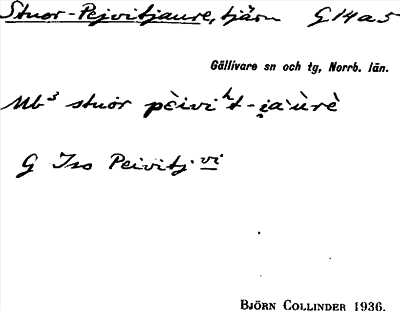 Stuor-Pejvitjaure, tjärn G 14 a 5
Gällivare sn och tg, Norrb. län.
Mb³ stuor pèivi ʰt-i̯a·ùrè
G Iso Peivitj. vi
BJÖRN COLLINDER 1936.